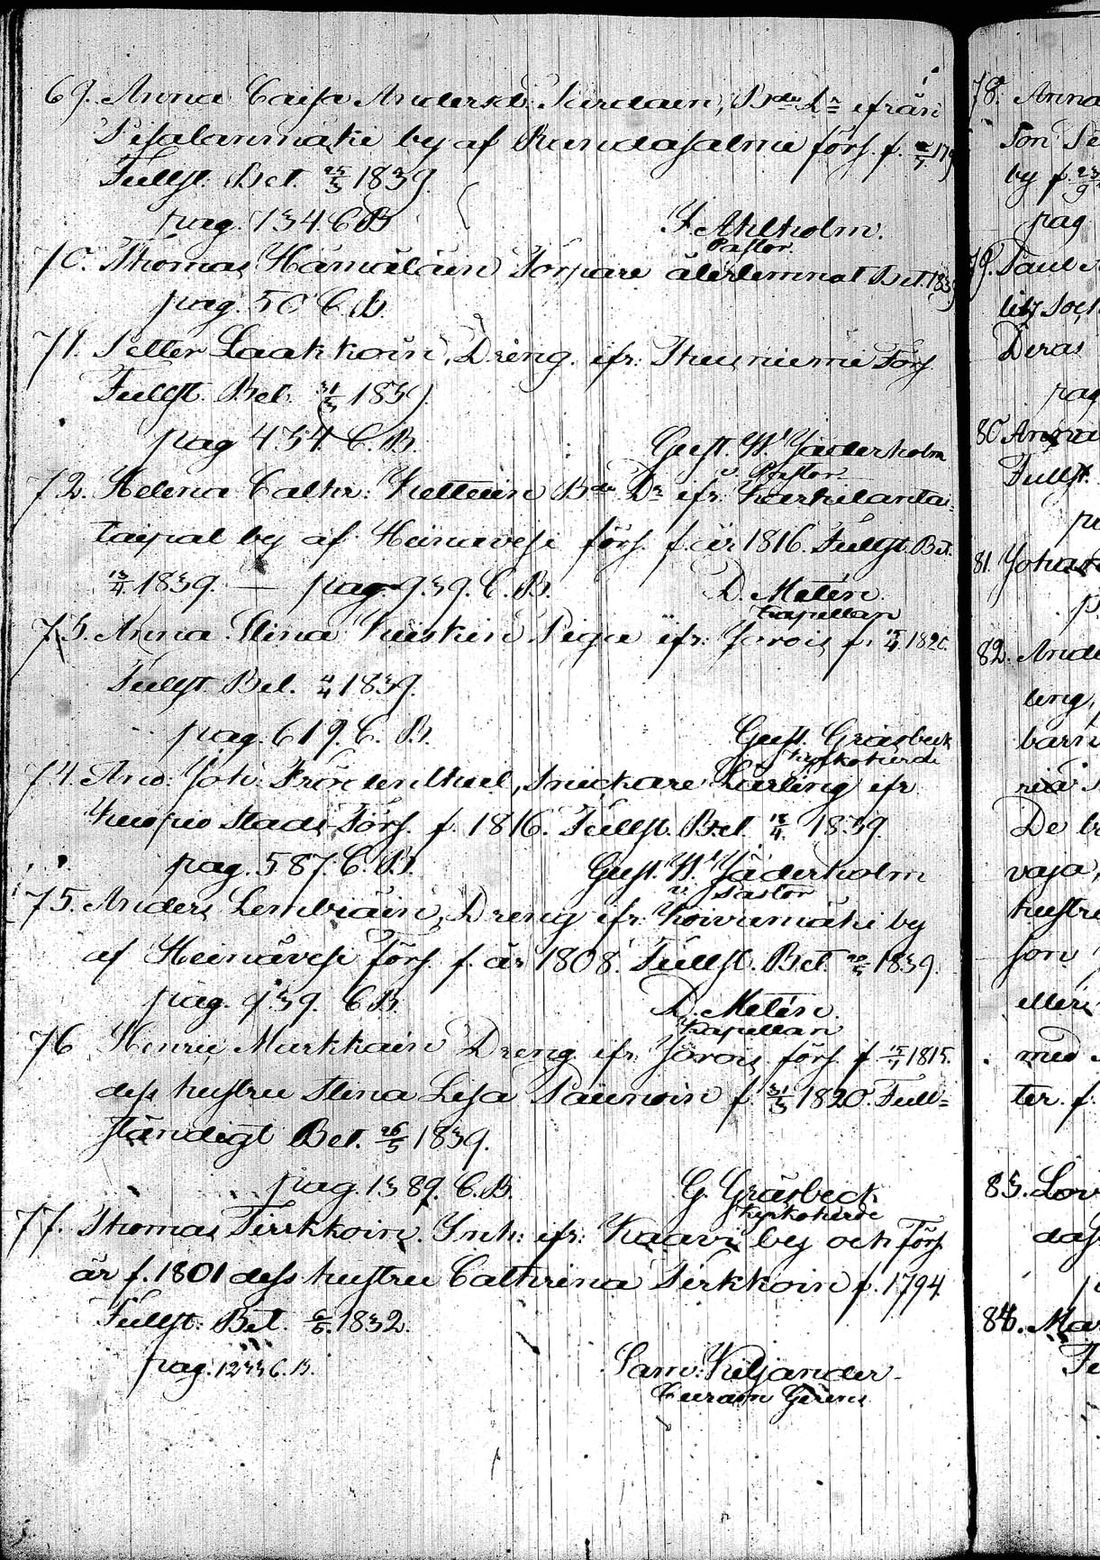 69. Anna Caisa Andersd. Surdain, Bde Dr ifrån
Pisalanmäki by af Randasalmi förs. f. 179
Fullst. Bet. 25/3 1839.
pag. 734 C.B.
J. Ahlholm.
Pastor.
70. Thomas Hämäläin Torpare återlemnat Bet. 1839
pag. 50 C.B.
71. Petter Laakkoin, Dreng ifr. Thusniemi Förs
Fullst. Bet. 31/3 1839
pag 434 C.B.
Gust. W. Jäderholm
v. Pastor
72. Helena Cathr. Kettuin Bde Dr ifr.
taipal by af Heinävesi förs. f. år 1816. Fullst. Bet.
13/4 1839. — pag. 939. C.B.
D. Metén.
Kapellan
73. Anna Stina Kuiskin Piga ifr. Jorois f. 1820.
Fullst. Bet. 4/4 1839.
pag. 619. C.B.
Gust. Gråsbeck
Kyrkoherde
74. And. Joh. Frödenthal, Snickare Lärling ifr
Kuopio Stads Förs. f. 1816. Fullst. Bet. 18/4 1839
pag. 587. C.B.
Gust. W. Jäderholm
v. Pastor
75. Anders Lembiäin, Dreng ifr. Koivumäki by
af Heinävesi förs. f. år 1808. Fullst. Bet. 1839.
pag. 939. C.B.
D. Metén.
Kapellan
76 Henric Markkain Dreng ifr. Jorois förs. f. 15/1 1815.
dess hustru Stina Lisa Paunoin f. 31/3 1820. Full=
ständigt Bet. 26/5 1839.
pag. 1389. C.B.
G. Gråsbeck
Kyrkoherde
77. Thomas Tirkkoin. Inh. ifr. Kaavi by och Förs
år f. 1801 dess hustru Cathrina Pirkkoin f. 1794.
Fullst. Bet. 1832.
pag. 1233 C.B.
Sam. Kiljander
Curam Gerens
78. Anna
Son
by f. 23/9
pag
79. Paul
Deras
pag
80 Anna
Fullst.
81. Johan
82. Ande
ling,
barn
De
vaja,
hustru
son
med
ter. f.
83. Lov
84. Ma